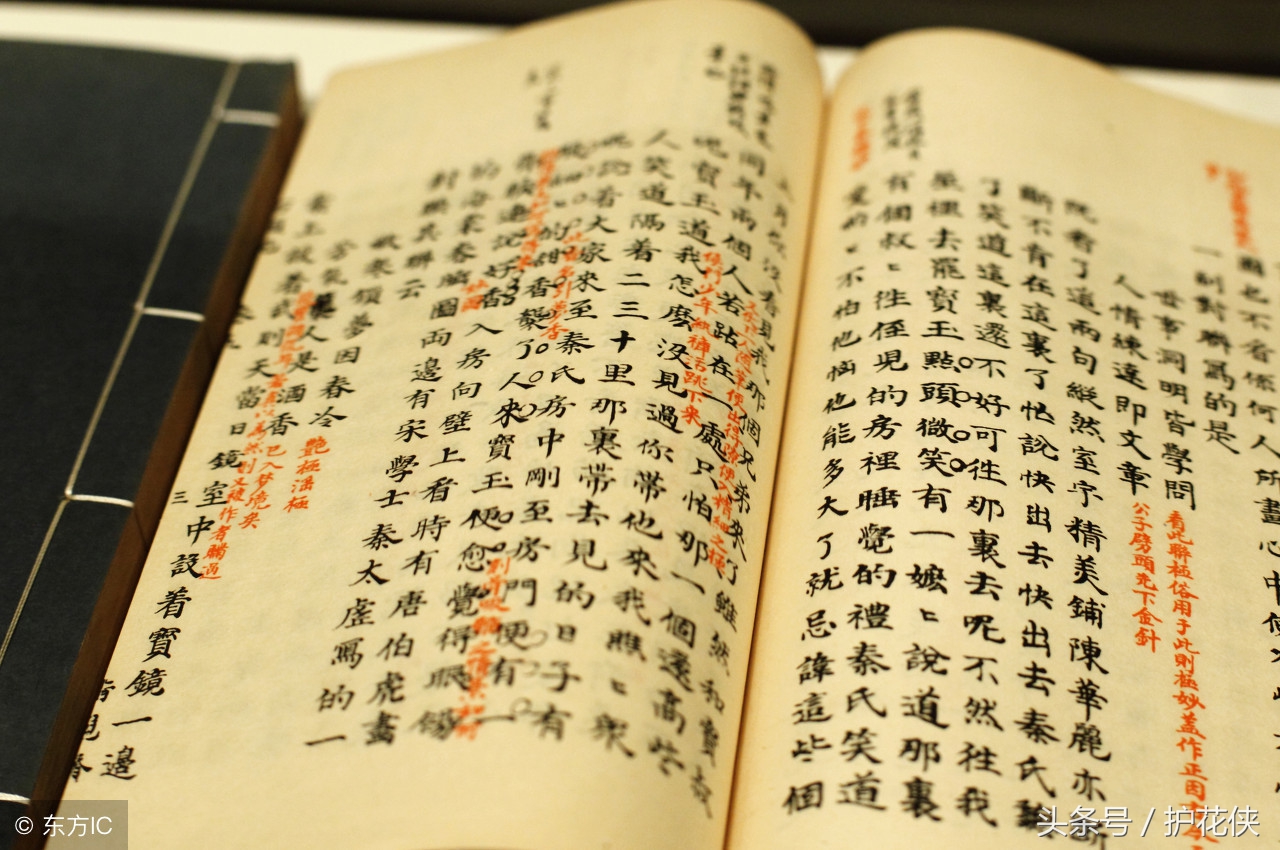 圖也不看係何人所畫心中
一副對聯寫的是
世事洞明皆學問
人情練達即文章
看此聯極俗用于此則極妙蓋作正因
公子劈頭先下金針
既看了這兩句縱然室宇精美鋪陳華麗亦斷
斷不肯在這裏了忙說快出去快出去秦氏聽
了笑道這裏還不好可往那裏去呢不然往我
屋裡去罷寶玉點頭微笑有一嬤〻說道那裏
有個叔〻往侄兒的房裡睡覺的禮秦氏笑道
愛喲〻不怕他惱他能多大了就忌諱這些個
上月你没看見我那個兄弟來了雖然和寶叔
同年兩個人若跕在一處只怕那一個還高些
侯門少年紈褲活跳下來
呢寶玉道我怎麽没見過你帶他來我瞧〻衆
人笑道隔着二三十里那裏帶去見的日子有
呢說着大家來至秦氏房中剛至房門便有一
此香名引夢香
股細〻的甜香襲了人來寶玉便愈覺得眼餳
骨軟連說好香入房向壁上看時有唐伯虎畫
的海棠春睡圖兩邊有宋學士秦太虛寫的一
對聯其聯云
嫩寒鎖夢因春冷
芳氣襲人是酒香
艷極淫極
已入夢境矣
案上設着武則天當日鏡室中設着寶鏡一邊
三
© 东方IC
头条号 / 护花侠